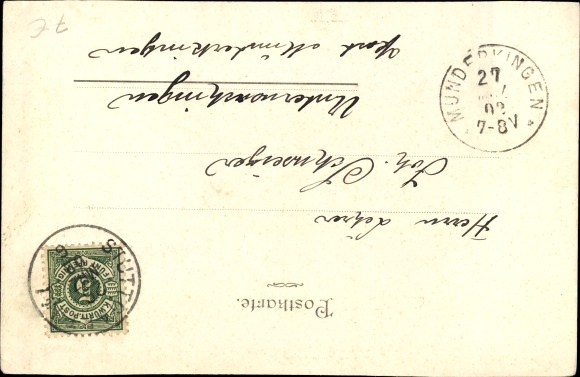 Postkarte.
Herrn Lehrer
Joh. Schweizer
Unterwachingen
Post Munderkingen
MUNDERKINGEN
27
02
7-8V
STUTT
K. WÜRTT. POST
5
FÜNF PFENNIG
7€